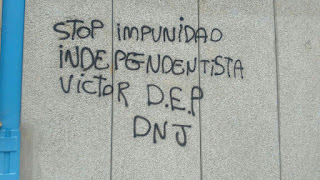 STOP IMPUNIDAD
INDEPENDENTISTA
VICTOR D.E.P
DNJ